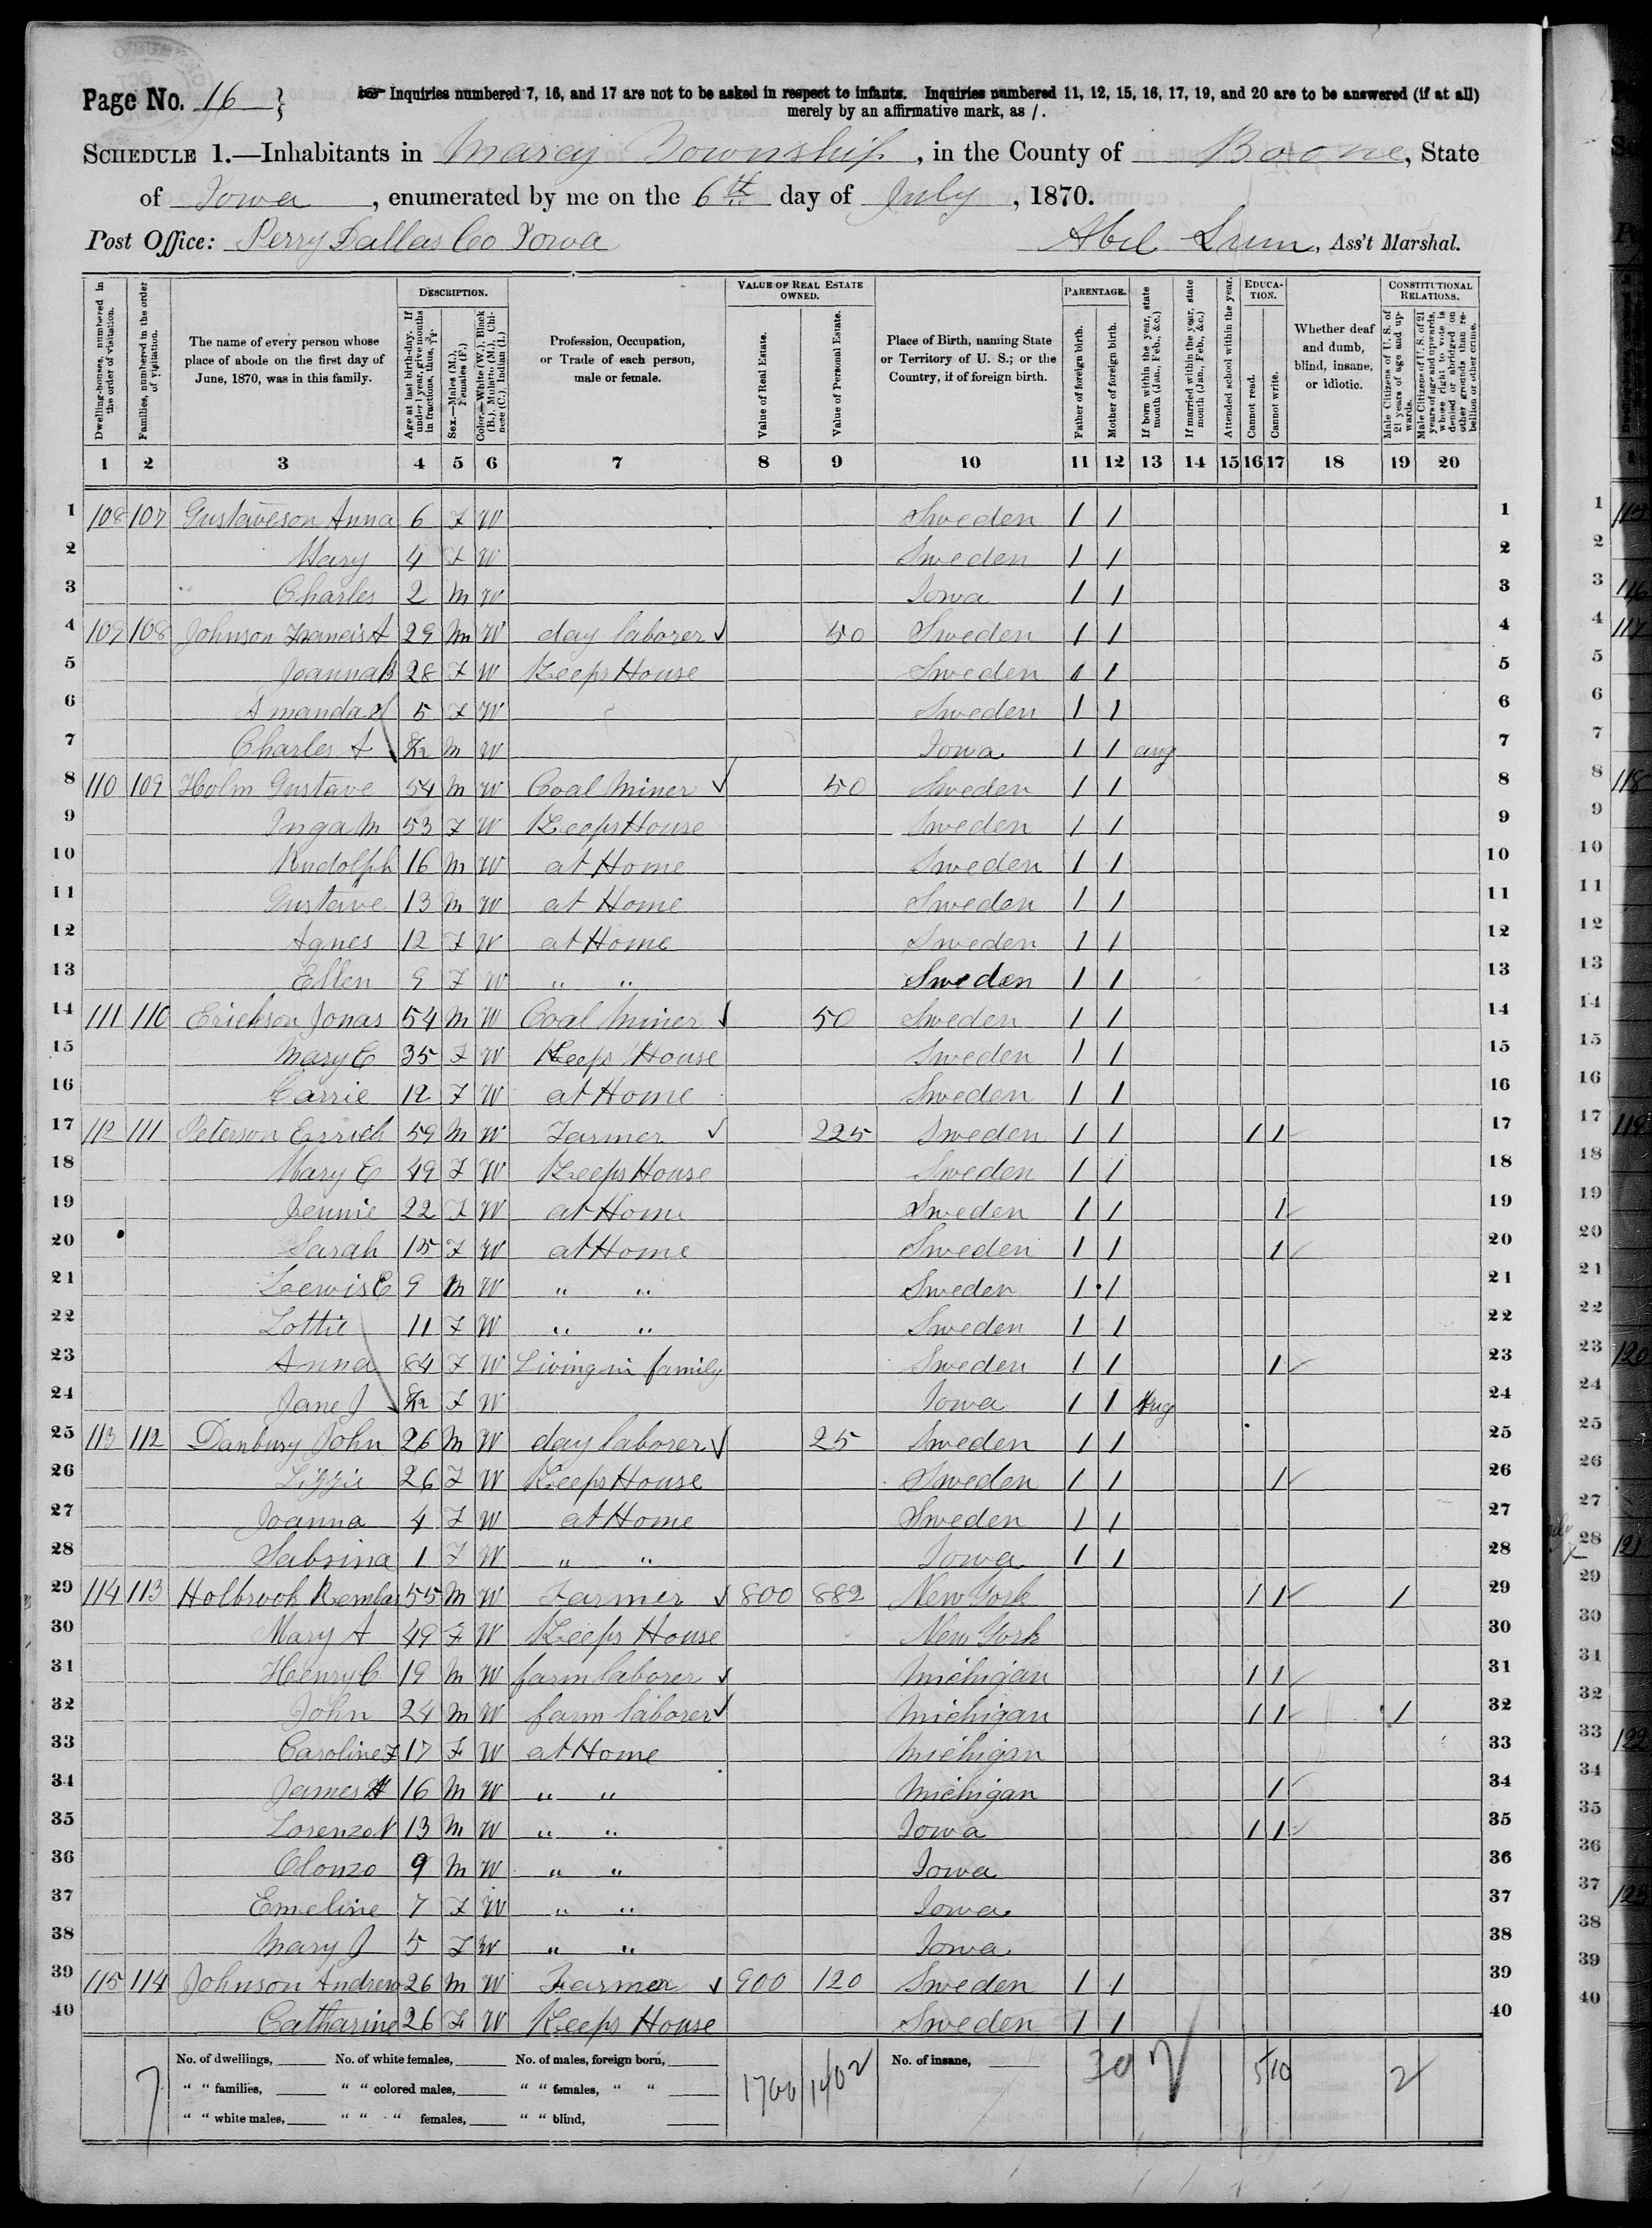 Page No. 16
Inquiries numbered 7, 16, and 17 are not to be asked in respect to infants. Inquiries numbered 11, 12, 15, 16, 17, 19, and 20 are to be answered (if at all)
merely by an affirmative mark, as /.
Schedule 1.—Inhabitants in Marcy Township, in the County of Boone, State
of Iowa, enumerated by me on the 6th day of July, 1870.
Post Office: Perry Dallas Co Iowa Abel , Ass't Marshal.
Dwelling-houses, numbered in the order of visitation.
Families, numbered in the order of visitation.
The name of every person whose place of abode on the first day of June, 1870, was in this family.
Description.
Age at last birth-day. If under 1 year, give months in fractions, thus, 3/12.
Sex.—Males (M.), Females (F.)
Color.—White (W.), Black (B.), Mulatto (M.), Chinese (C.), Indian (I.)
Profession, Occupation, or Trade of each person, male or female.
Value of Real Estate Owned.
Value of Real Estate.
Value of Personal Estate.
Place of Birth, naming State or Territory of U. S.; or the Country, if of foreign birth.
Parentage.
Father of foreign birth.
Mother of foreign birth.
If born within the year, state month (Jan., Feb., &c.)
If married within the year, state month (Jan., Feb., &c.)
Attended school within the year.
Education.
Cannot read.
Cannot write.
Whether deaf and dumb, blind, insane, or idiotic.
Constitutional Relations.
Male Citizens of U. S. of 21 years of age and upwards.
Male Citizens of U. S. of 21 years of age and upwards, whose right to vote is denied or abridged on other grounds than rebellion or other crime.
1 2 3 4 5 6 7 8 9 10 11 12 13 14 15 16 17 18 19 20
1 108 107 Gustaveson Anna 6 F W Sweden 1 1 1
2 Mary 4 F W Sweden 1 1 2
3 Charles 2 M W Iowa 1 1 3
4 109 108 Johnson Francis A 29 M W day laborer ✓ 50 Sweden 1 1 4
5 Joanna B 28 F W Keeps House Sweden 1 1 5
6 Amanda 5 F W Sweden 1 1 6
7 Charles A M W Iowa 1 1 aug 7
8 110 109 Holm Gustave 54 M W Coal Miner ✓ 50 Sweden 1 1 8
9 Inga M 53 F W Keeps House Sweden 1 1 9
10 Rudolph 16 M W at Home Sweden 1 1 10
11 Gustave 13 M W at Home Sweden 1 1 11
12 Agnes 12 F W at Home Sweden 1 1 12
13 Ellen 9 F W " " Sweden 1 1 13
14 111 110 Erickson Jonas 54 M W Coal Miner ✓ 50 Sweden 1 1 14
15 Mary C 35 F W Keeps House Sweden 1 1 15
16 Carrie 12 F W at Home Sweden 1 1 16
17 112 111 Peterson Errick 59 M W Farmer ✓ 225 Sweden 1 1 1 1 17
18 Mary C 49 F W Keeps House Sweden 1 1 18
19 Jennie 22 F W at Home Sweden 1 1 1 19
20 Sarah 15 F W at Home Sweden 1 1 1 20
21 Lewis E 9 M W " " Sweden 1 1 21
22 Lottie 11 F W " " Sweden 1 1 22
23 Anna 84 F W Living in family Sweden 1 1 1 23
24 Jane J F W Iowa 1 1 Aug 24
25 113 112 Danbury John 26 M W day laborer ✓ 25 Sweden 1 1 25
26 Lizzie 26 F W Keeps House Sweden 1 1 1 26
27 Joanna 4 F W at Home Sweden 1 1 27
28 Sabrina 1 F W " " Iowa 1 1 28
29 114 113 Holbrook 55 M W Farmer ✓ 800 882 New York 1 1 1 29
30 Mary A 49 F W Keeps House New York 30
31 Henry C 19 M W farm laborer ✓ Michigan 1 1 31
32 John 24 M W farm laborer ✓ Michigan 1 1 1 32
33 Caroline F 17 F W at Home Michigan 33
34 James H 16 M W " " Michigan 1 34
35 Lorenzo 13 M W " " Iowa 1 1 35
36 Olonzo 9 M W " " Iowa 36
37 Emeline 7 F W " " Iowa 37
38 Mary J 5 F W " " Iowa 38
39 115 114 Johnson Andrew 26 M W Farmer ✓ 900 120 Sweden 1 1 39
40 Catharine 26 F W Keeps House Sweden 1 1 40
No. of dwellings, No. of white females, No. of males, foreign born, No. of insane,
" " families, " " colored males, " " females, " "
" " white males, " " " females, " " blind,
7 1700 1402 30 2 5 10 2